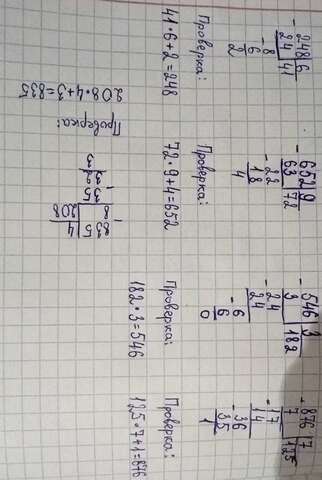 - 248 | 6
24 | 41
- 8
6
2
Проверка:
41 · 6 + 2 = 248
- 652 | 9
63 | 72
- 22
18
4
Проверка:
72 · 9 + 4 = 652
- 546 | 3
3 | 182
- 24
24
- 6
6
0
Проверка:
182 · 3 = 546
- 876 | 7
7 | 125
- 17
14
- 36
35
1
Проверка:
125 · 7 + 1 = 876
- 835 | 4
8 | 208
- 35
32
3
Проверка:
208 · 4 + 3 = 835